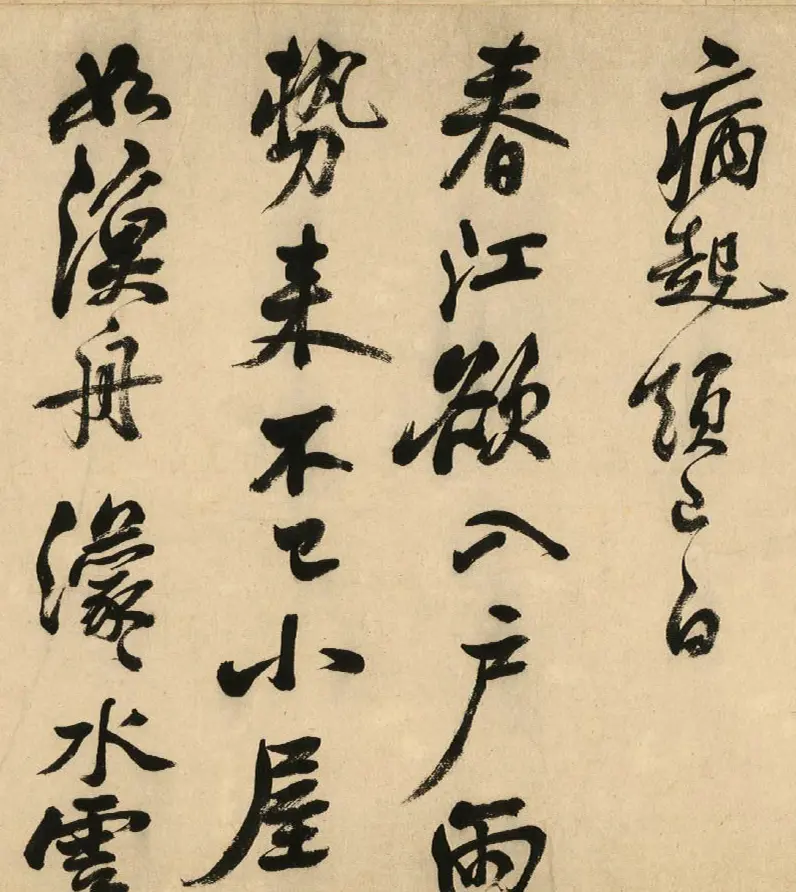 病起須已白
春江欲入户雨
勢来不已小屋
如漁舟濛〻水雲